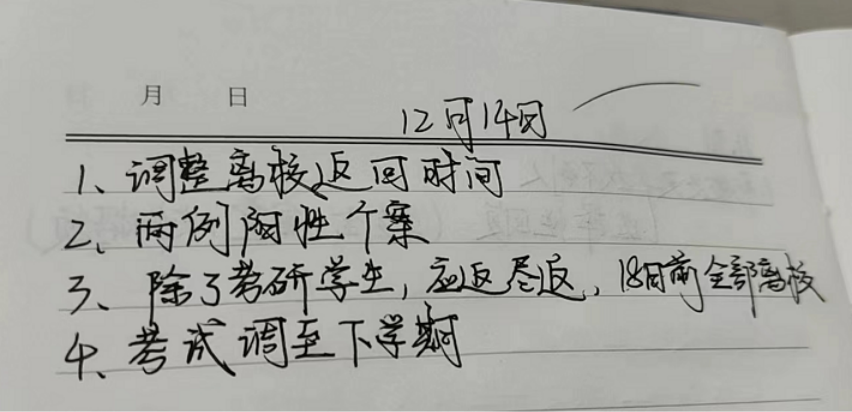 月 日
12月14日
1、调整离校返回时间
2、两例阳性个案
3、除了考研学生，应返尽返，18日前全部离校
4、考试调至下学期